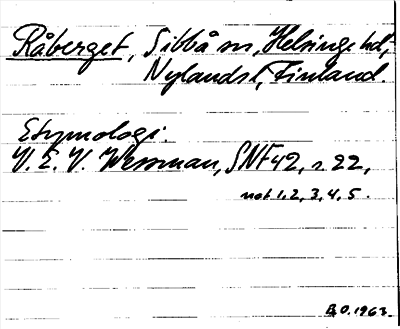 Råberget, Sibbå sn, Helsinge hd,
Nylands l, Finland.
Etymologi.
V. E. V. Wessman, SNF 42, s. 22,
not 1, 2, 3, 4, 5.
B.O. 1963.